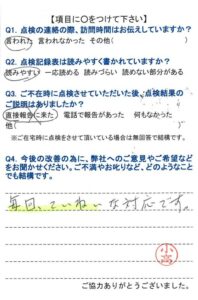 【項目に〇をつけて下さい】
Q1. 点検の連絡の際、訪問時間はお伝えしていますか？
言われた 言われなかった その他(　　　)
Q2. 点検記録表は読みやすく書かれていますか？
読みやすい 一応読める 読みづらい 読めない部分がある
Q3. ご不在時に点検させていただいた後、点検結果の
ご説明はありましたか？
直接報告に来た 電話で報告があった 何もなかった
他(　　　)
※ご在宅時に点検をさせて頂いている場合は無回答で結構です。
Q4. 今後の改善の為に、弊社へのご意見やご希望など
をお聞かせください。ご不満やお叱りなど、どのようなこと
でも結構です。
毎回、ていねいな対応です。
小高
ご協力ありがとうございました。